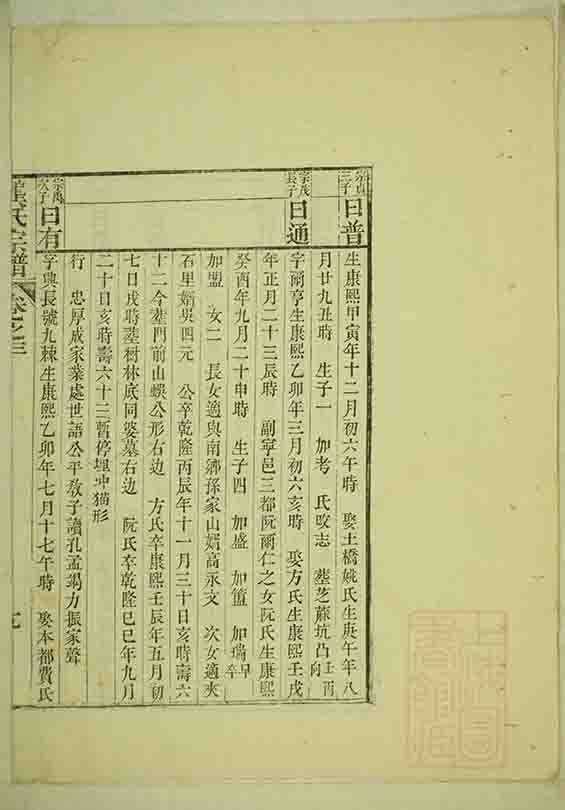 宗貞三子
曰普
生康熙甲寅年十二月初六午時 娶土橋姚氏生庚午年八
月廿九丑時 生子一 加考 氏改志 塟芝蔴坑凸壬丙向
宗茂長子
曰通
字爾亨生康熙乙卯年三月初六亥時 娶方氏生康熙壬戌
年正月二十三辰時 副寧邑三都阮爾仁之女阮氏生康熙
癸酉年九月二十申時 生子四 加盛 加簠 加瑞早卒
加盟 女二 長女適與南鄉孫家山婿高永文 次女適夾
石里婿吳四元 公卒乾隆丙辰年十一月三十日亥時壽六
十二今塟門前山蜈公形右边 方氏卒康熙壬辰年五月初
七日戌時塟樹林底同婆墓右边 阮氏卒乾隆己巳年九月
二十日亥時壽六十三暫停埋冲猫形
行 忠厚成家業處世語公平教子讀孔孟竭力振家聲
次子
曰有
字典長號九棘生康熙乙卯年七月十七午時 娶本都費氏
氏宗譜 卷之三